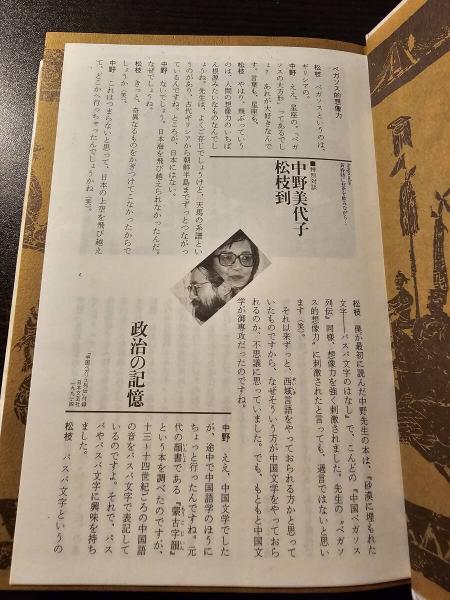 ペガソス的想像力
松枝 ペガソスというのは、
ギリシアの。
中野 ええ、星座の。“ペガ
ソスの大方形”ってあるでし
ょ？ あれが大好きなんで
す。言葉も、星座も。
松枝 やはり、飛ぶっていう
のは、人間の想像力のいちば
ん根源みたいなものなんでし
ょうね。先生は、よくご存じでしょうけど、天馬の系譜とい
うのがあり、古代ギリシアから朝鮮半島までずっとつながっ
ているんですね。ところが、日本にはない。
中野 ないでしょう。日本海を飛び越えられなかったんだ。
なぜでしょうね。
松枝 きっと、異異なるものをかぎつけてこなかったからで
しょうか（笑）。
中野 これはつまらないと思って、日本の上空を飛び越え
て、どこかへ行っちゃったんでしょうかね（笑）。
■特別対談
中野美代子
松枝到
政治の記憶
日本文芸社
松枝 僕が最初に読んだ中野先生の本は、『砂漠に埋もれた
文字——パスパ文字のはなし』で、こんどの『中国ペガソス
列伝』同様、想像力を強く刺激されました。先生の“ペガソ
ス的想像力”に刺激されたと言っても、過言ではないと思い
ます（笑）。
それ以来ずっと、西域言語をやっておられる方かと思って
いたものですから、なぜそういう方が中国文学をやっておら
れるのか、不思議に思っていました。でも、もともと中国文
学が御専攻だったのですね。
中野 ええ、中国文学でした
が、途中で中国語学のほうに
ちょっと行ったんですね。元
代の韻書である『蒙古字韻』
という本を調べたのですが、
十三〜十四世紀ごろの中国語
の音をパスパ文字で表記して
いるのですよ。それで、パス
パやパスパ文字に興味を持ち
ました。
松枝 パスパ文字というの